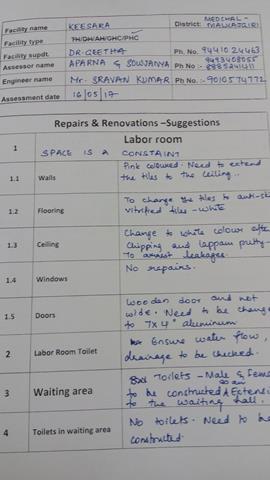 Facility name KEESARA District: MEDCHAL - MALKAJGIRI
Facility type TH/DH/AH/CHC/PHC
Facility supdt. DR. GEETHA Ph No. 9441024463
Assessor name APARNA & SOUJANYA Ph No :- 9493408055
8885241411
Engineer name Mr. SRAVAN KUMAR Ph No :- 9010574772
Assessment date 16/05/17
Repairs & Renovations –Suggestions
1 Labor room
SPACE IS A CONSTAINT
1.1 Walls Pink coloured. Need to extend
the tiles to the ceiling..
1.2 Flooring To change the tiles to anti-sk
vitrified tiles - white
1.3 Ceiling Change to white colour afte
chipping and lappam putty-
To arrest leakages.
1.4 Windows No repairs.
1.5 Doors Wooden door and not
wide. Need to be chang
to 7x4" aluminum
2 Labor Room Toilet Ensure water flow,
drainage to be checked.
3 Waiting area Toilets - Male & Fema
to be constructed & Extensi
to the waiting hall.
4 Toilets in waiting area No toilets. Need to be
constructed.